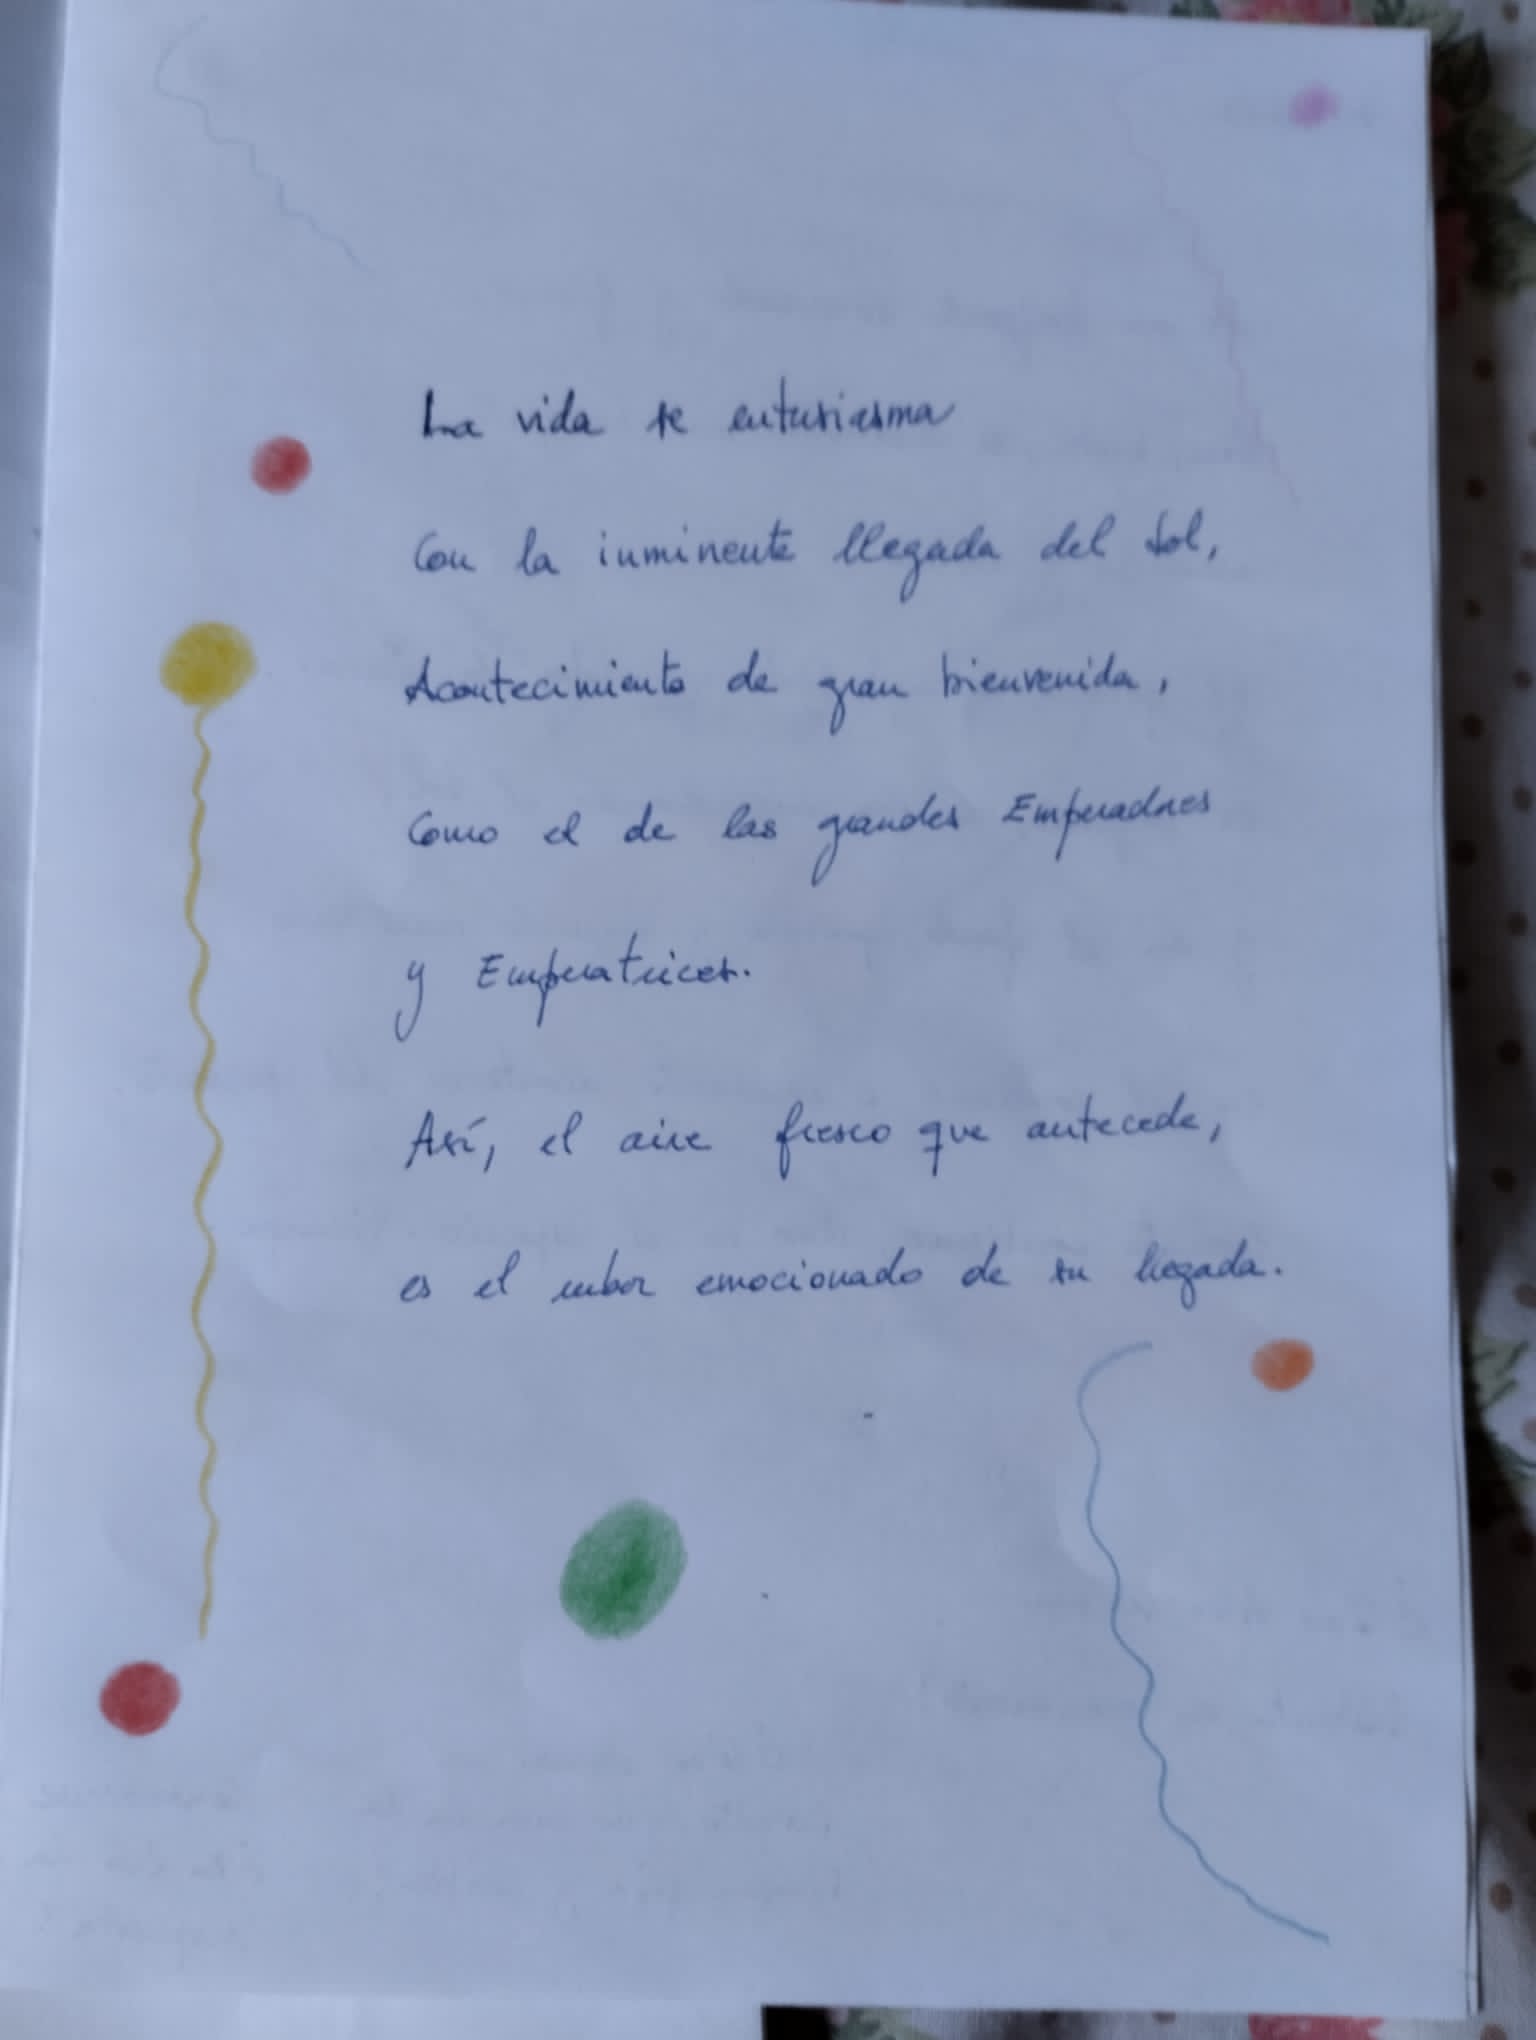 La vida se entusiasma
Con la inminente llegada del Sol,
Acontecimiento de gran bienvenida,
Como el de las grandes Emperadores
y Emperatrices.
Así, el aire fresco que antecede,
es el rubor emocionado de su llegada.